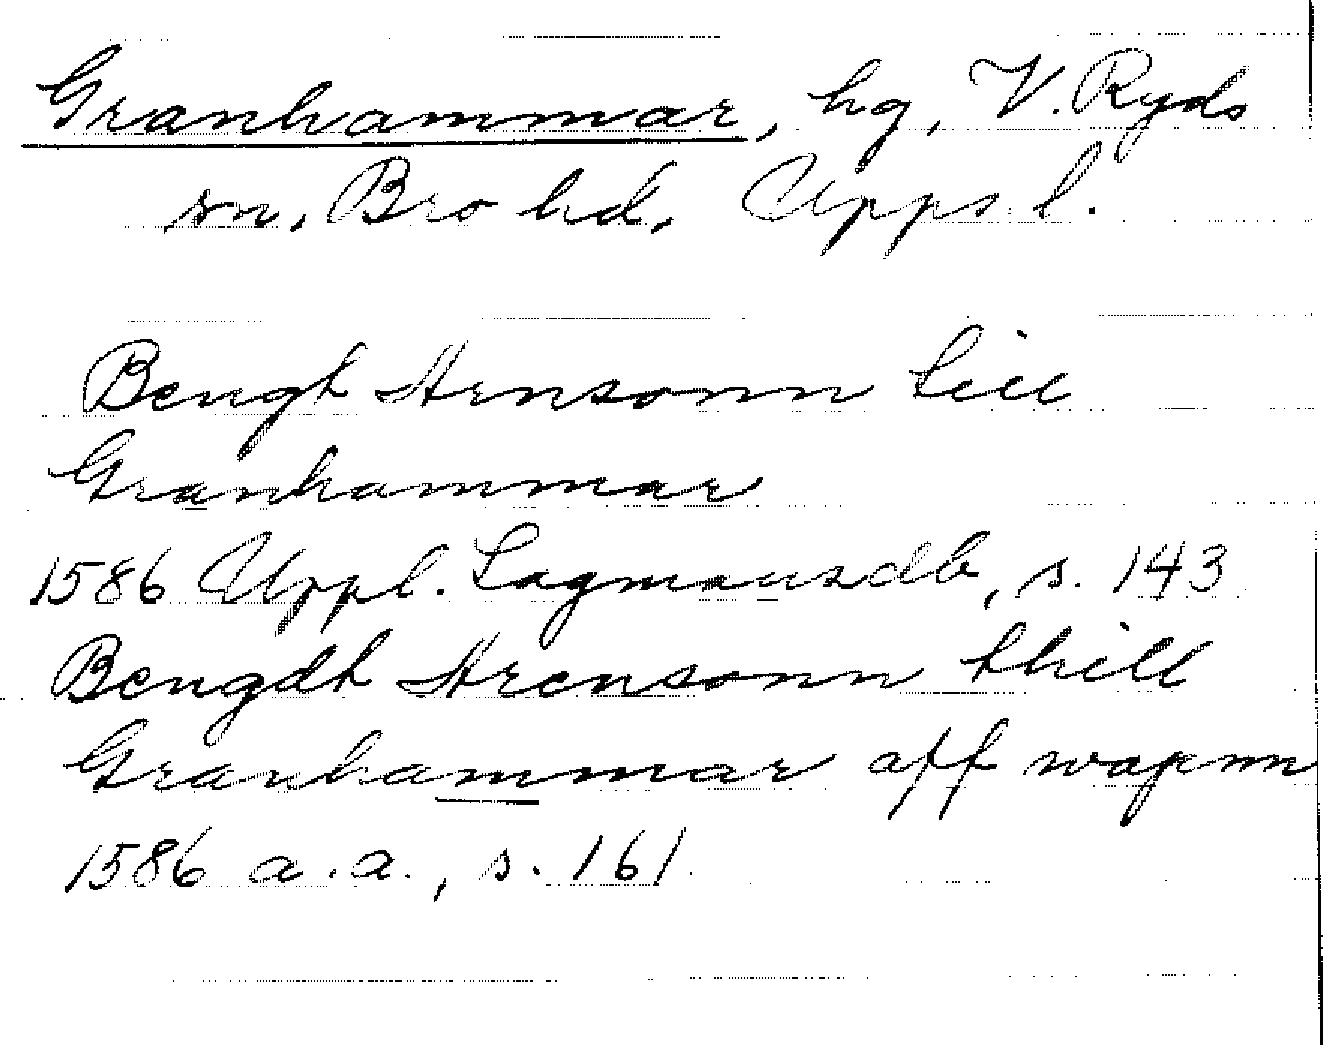 Granhammar, hg, V. Ryds
sn, Bro hd, Upps. l.
Bengt Arnsonn till
Granhammar
1586 Uppl. Lagmansdb, s. 143
Bengdt Arensonn thill
Granhammar aff wapnn
1586 a.a., s. 161.